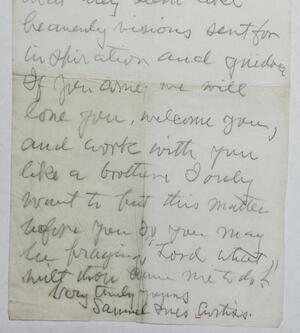 that they seem like
heavenly visions sent for
inspiration and guidance
If you come we will
love you, welcome you,
and work with you
like a brother. I only
want to put this matter
before you so you may
be praying, "Lord what
wilt thou have me to do?"
Very truly yours
Samuel Ives Curtiss.